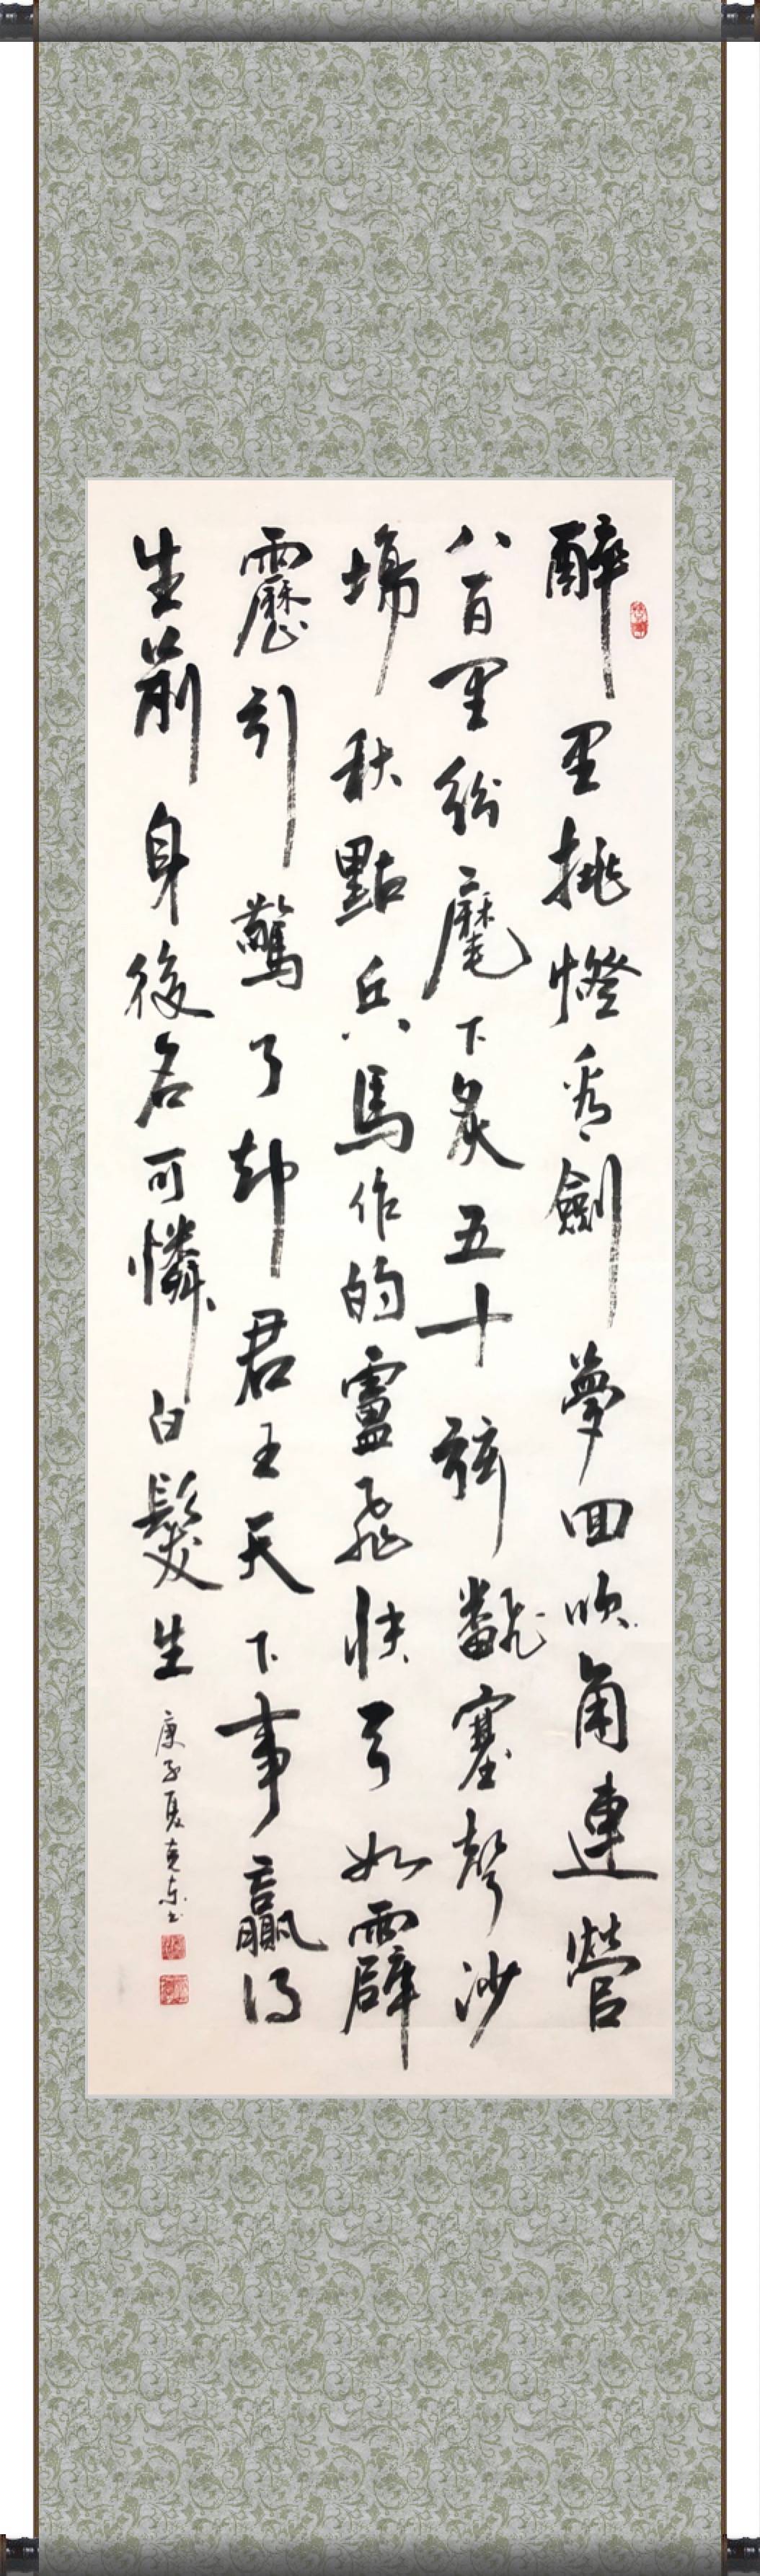 醉里挑燈看劍夢回吹角連營
八百里紛麾下炙五十弦翻塞聲沙
場秋點兵馬作的盧飛快弓如霹
靂弦驚了卻君王天下事贏得
生前身後名可憐白髮生
庚子夏克東書